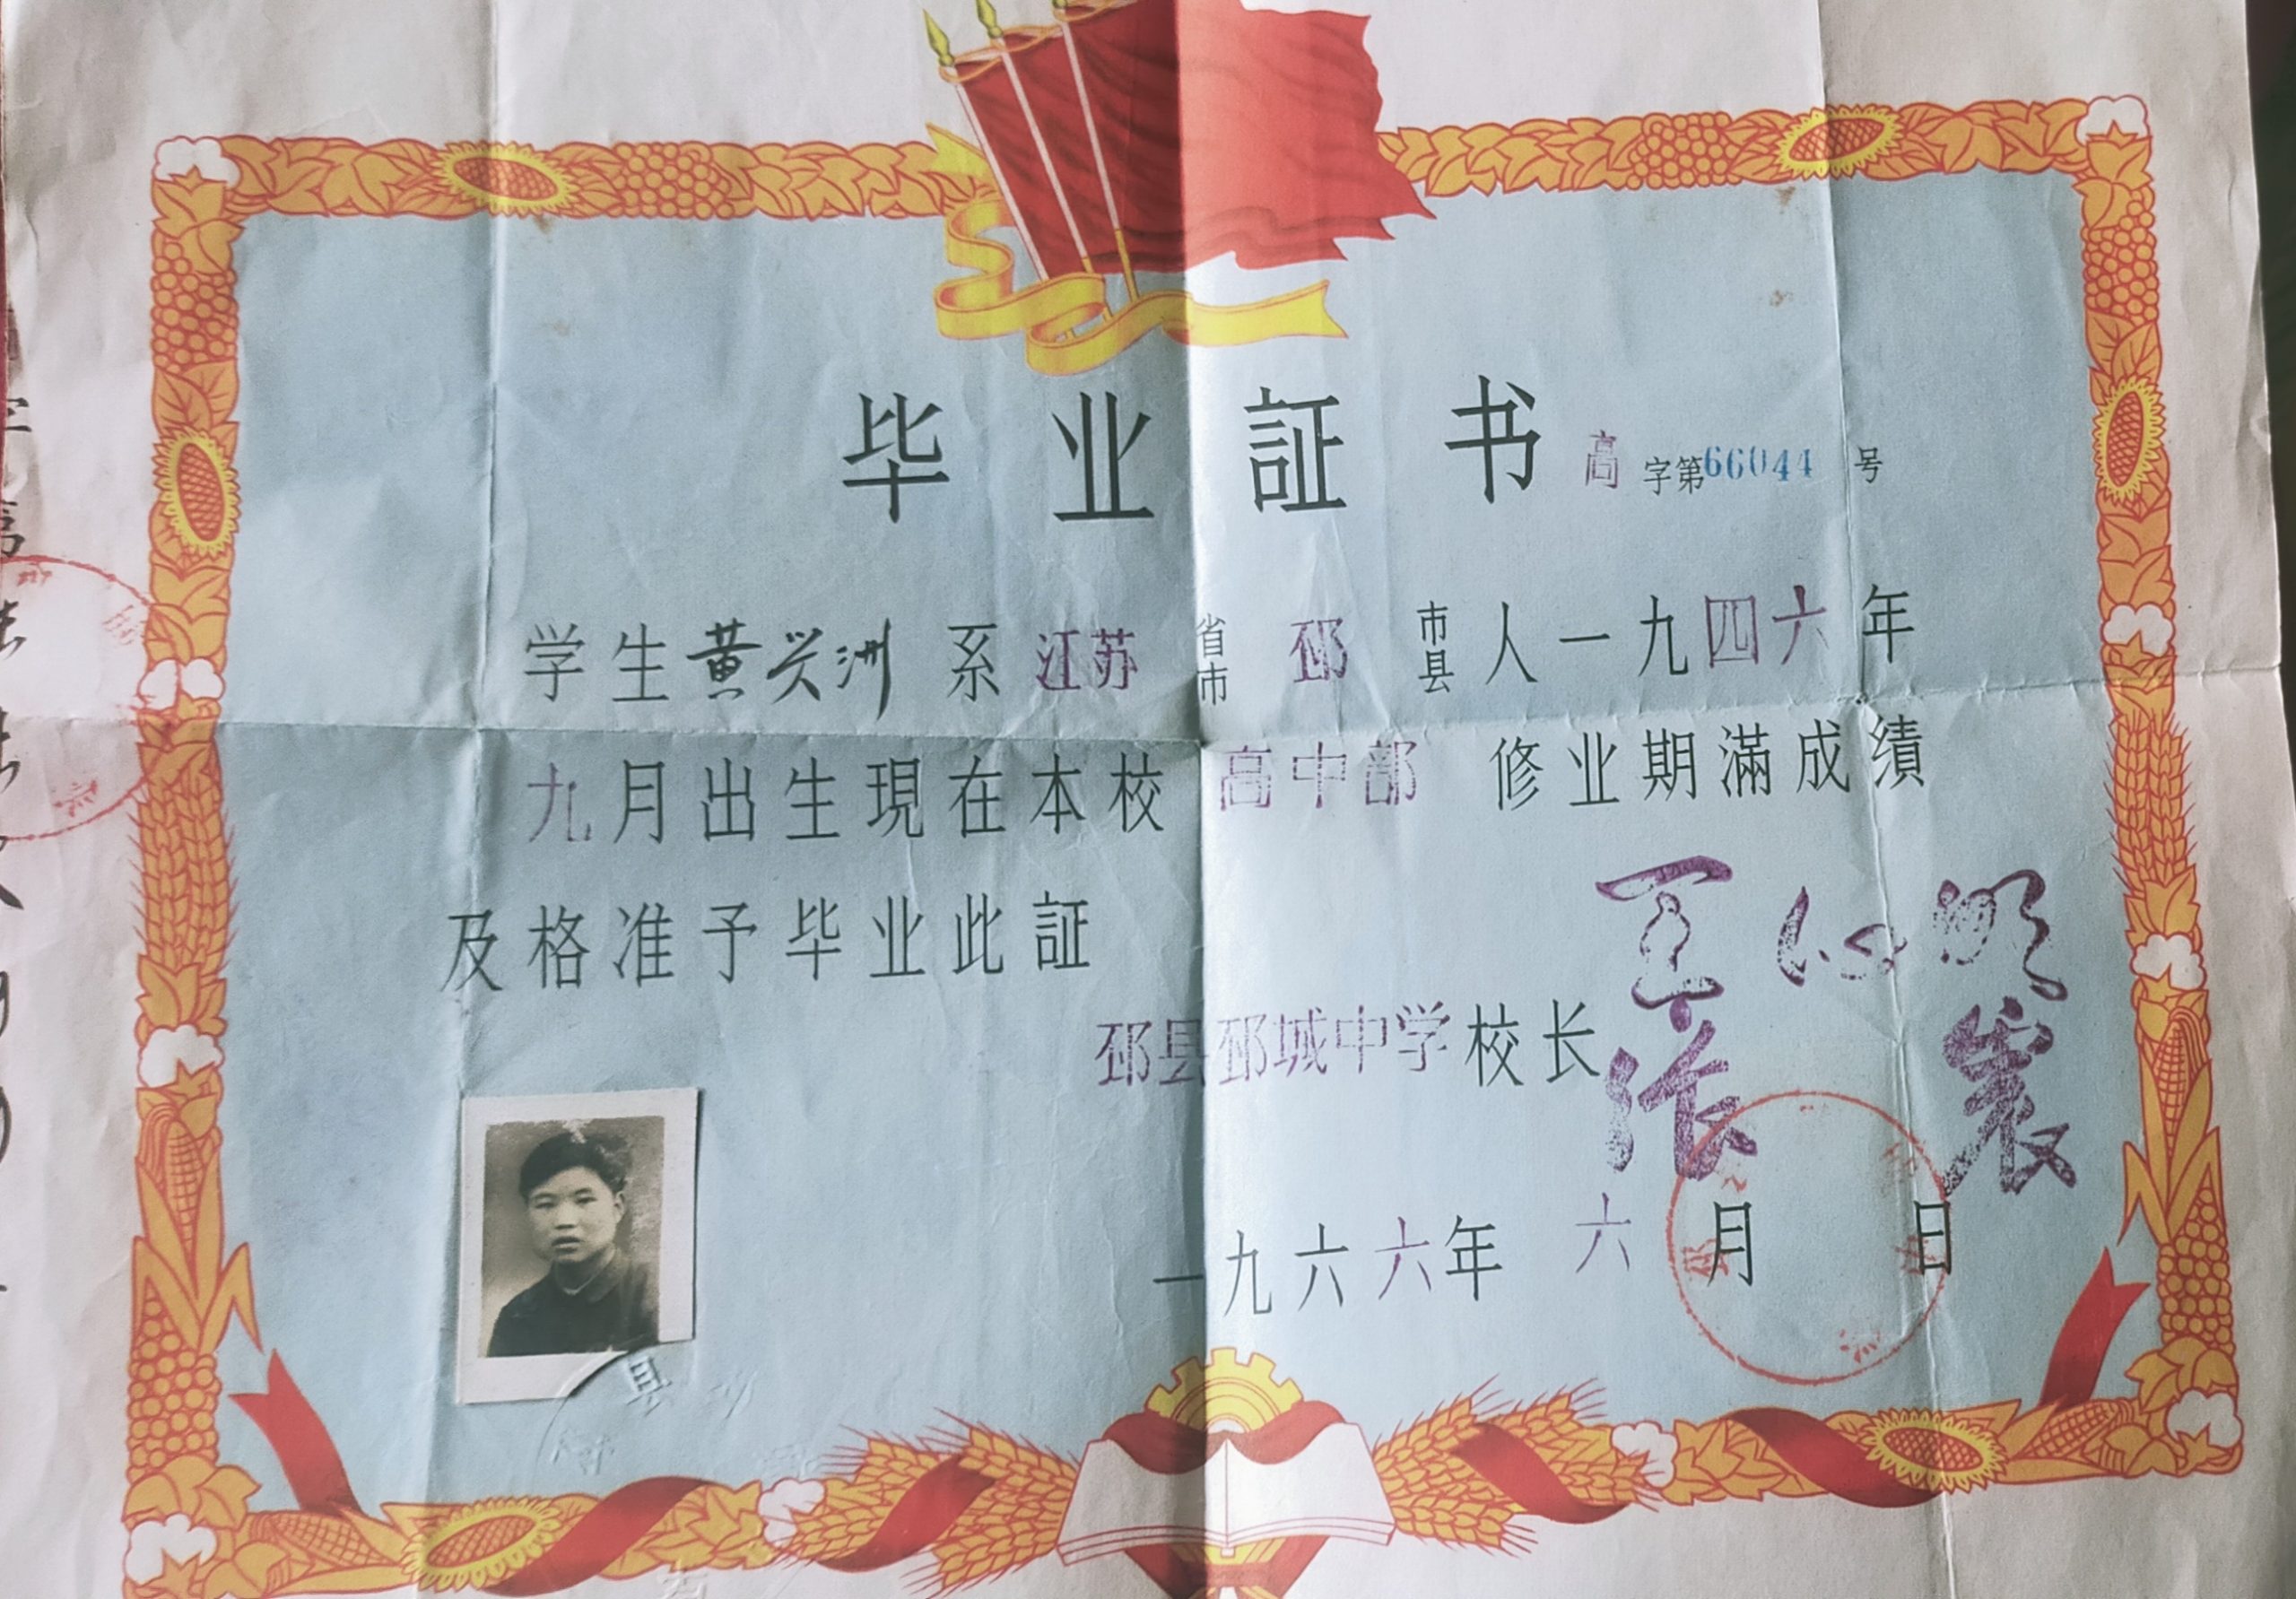 毕业証书 高字第66044号
学生黄兴洲系江苏省市邳市县人一九四六年
九月出生現在本校高中部修业期滿成績
及格准予毕业此証
邳县邳城中学校长
一九六六年六月日
县